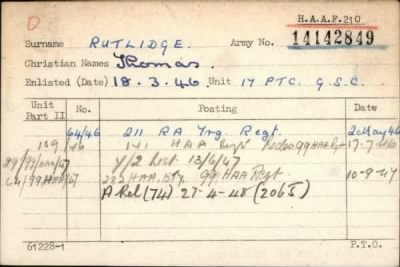 D
H.A.A.F. 210
Surname RUTLIDGE. Army No. 14142849
Christian Names Thomas.
Enlisted (Date) 18.3.46. Unit 17 PTC. G.S.C.
Unit Part II No. Posting Date
64/46 211 RA Trg. Regt. 2 May 46
159/46 141 HAA Regt 99 HAA Rgt 17-7-46
Y/2 List 13/6/47
282 HAA. Bty. 99 HAA Regt 10-9-47
A Rel (74) 27-4-48 (2065)
61228-1 P.T.O.